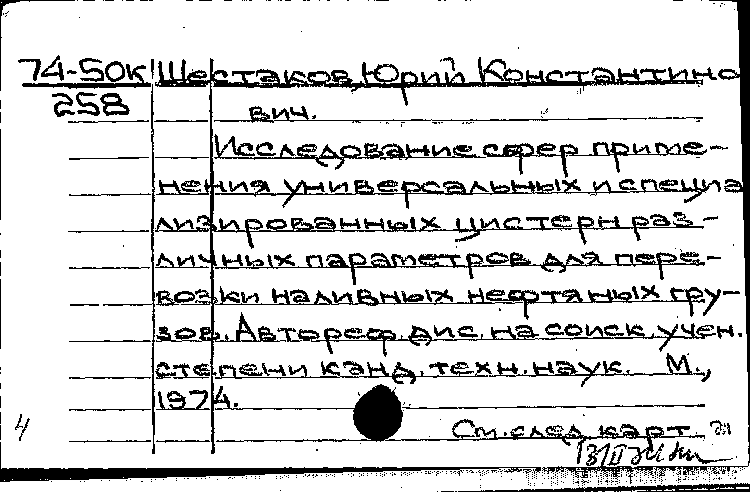 74-50к Шестаков, Юрий Константино
258 вич.
Исследование сфер приме-
нения универсальных и специа
лизированных цистерн раз-
личных параметров для пере-
возки наливных нефтяных гру-
зов. Автореф. дис. на соиск. учен.
степени канд. техн. наук. М.,
1974.
4
См. след. карт.